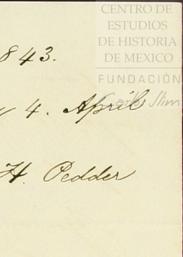 CENTRO DE
ESTUDIOS
DE HISTORIA
DE MEXICO
FUNDACIÓN
Carlos Slim
1843.
4. April
H. Pedder